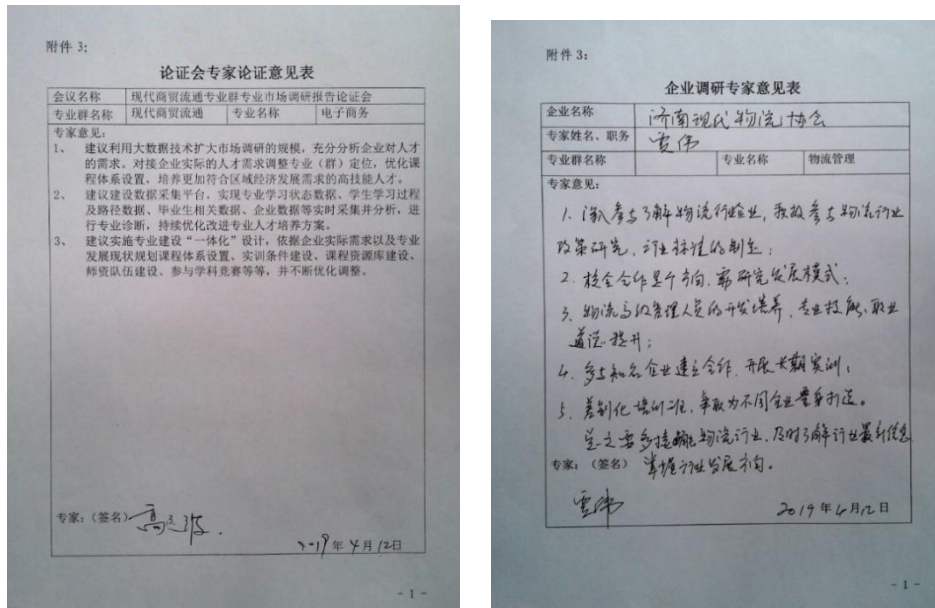 附件 3：
论证会专家论证意见表
会议名称 现代商贸流通专业群专业市场调研报告论证会
专业群名称 现代商贸流通 专业名称 电子商务
专家意见：
1、 建议利用大数据技术扩大市场调研的规模，充分分析企业对人才
的需求。对接企业实际的人才需求调整专业（群）定位，优化课
程体系设置，培养更加符合区域经济发展需求的高技能人才。
2、 建议建设数据采集平台，实现专业学习状态数据、学生学习过程
及路径数据、毕业生相关数据、企业数据等实时采集并分析，进
行专业诊断，持续优化改进专业人才培养方案。
3、 建议实施专业建设“一体化”设计，依据企业实际需求以及专业
发展现状规划课程体系设置、实训条件建设、课程资源库建设、
师资队伍建设、参与学科竞赛等等，并不断优化调整。
专家：（签名）
2019年4月12日
- 1 -
附件 3：
企业调研专家意见表
企业名称 济南现代物流协会
专家姓名、职务 贾伟
专业群名称 专业名称 物流管理
专家意见：
1. 深入参与了解物流行业企业，积极参与物流行业
政策研究，行业标准的制定；
2. 校企合作是个方向，需研究发展模式；
3. 物流高级管理人员的开发培养，专业技能、职业
道德提升；
4. 多与知名企业建立合作，开展长期实训；
5. 差别化培训班，争取为不同企业量身打造。
总之要多接触物流行业，及时了解行业最新信息
专家：（签名） 掌握行业发展方向。
2019年4月12日
- 1 -